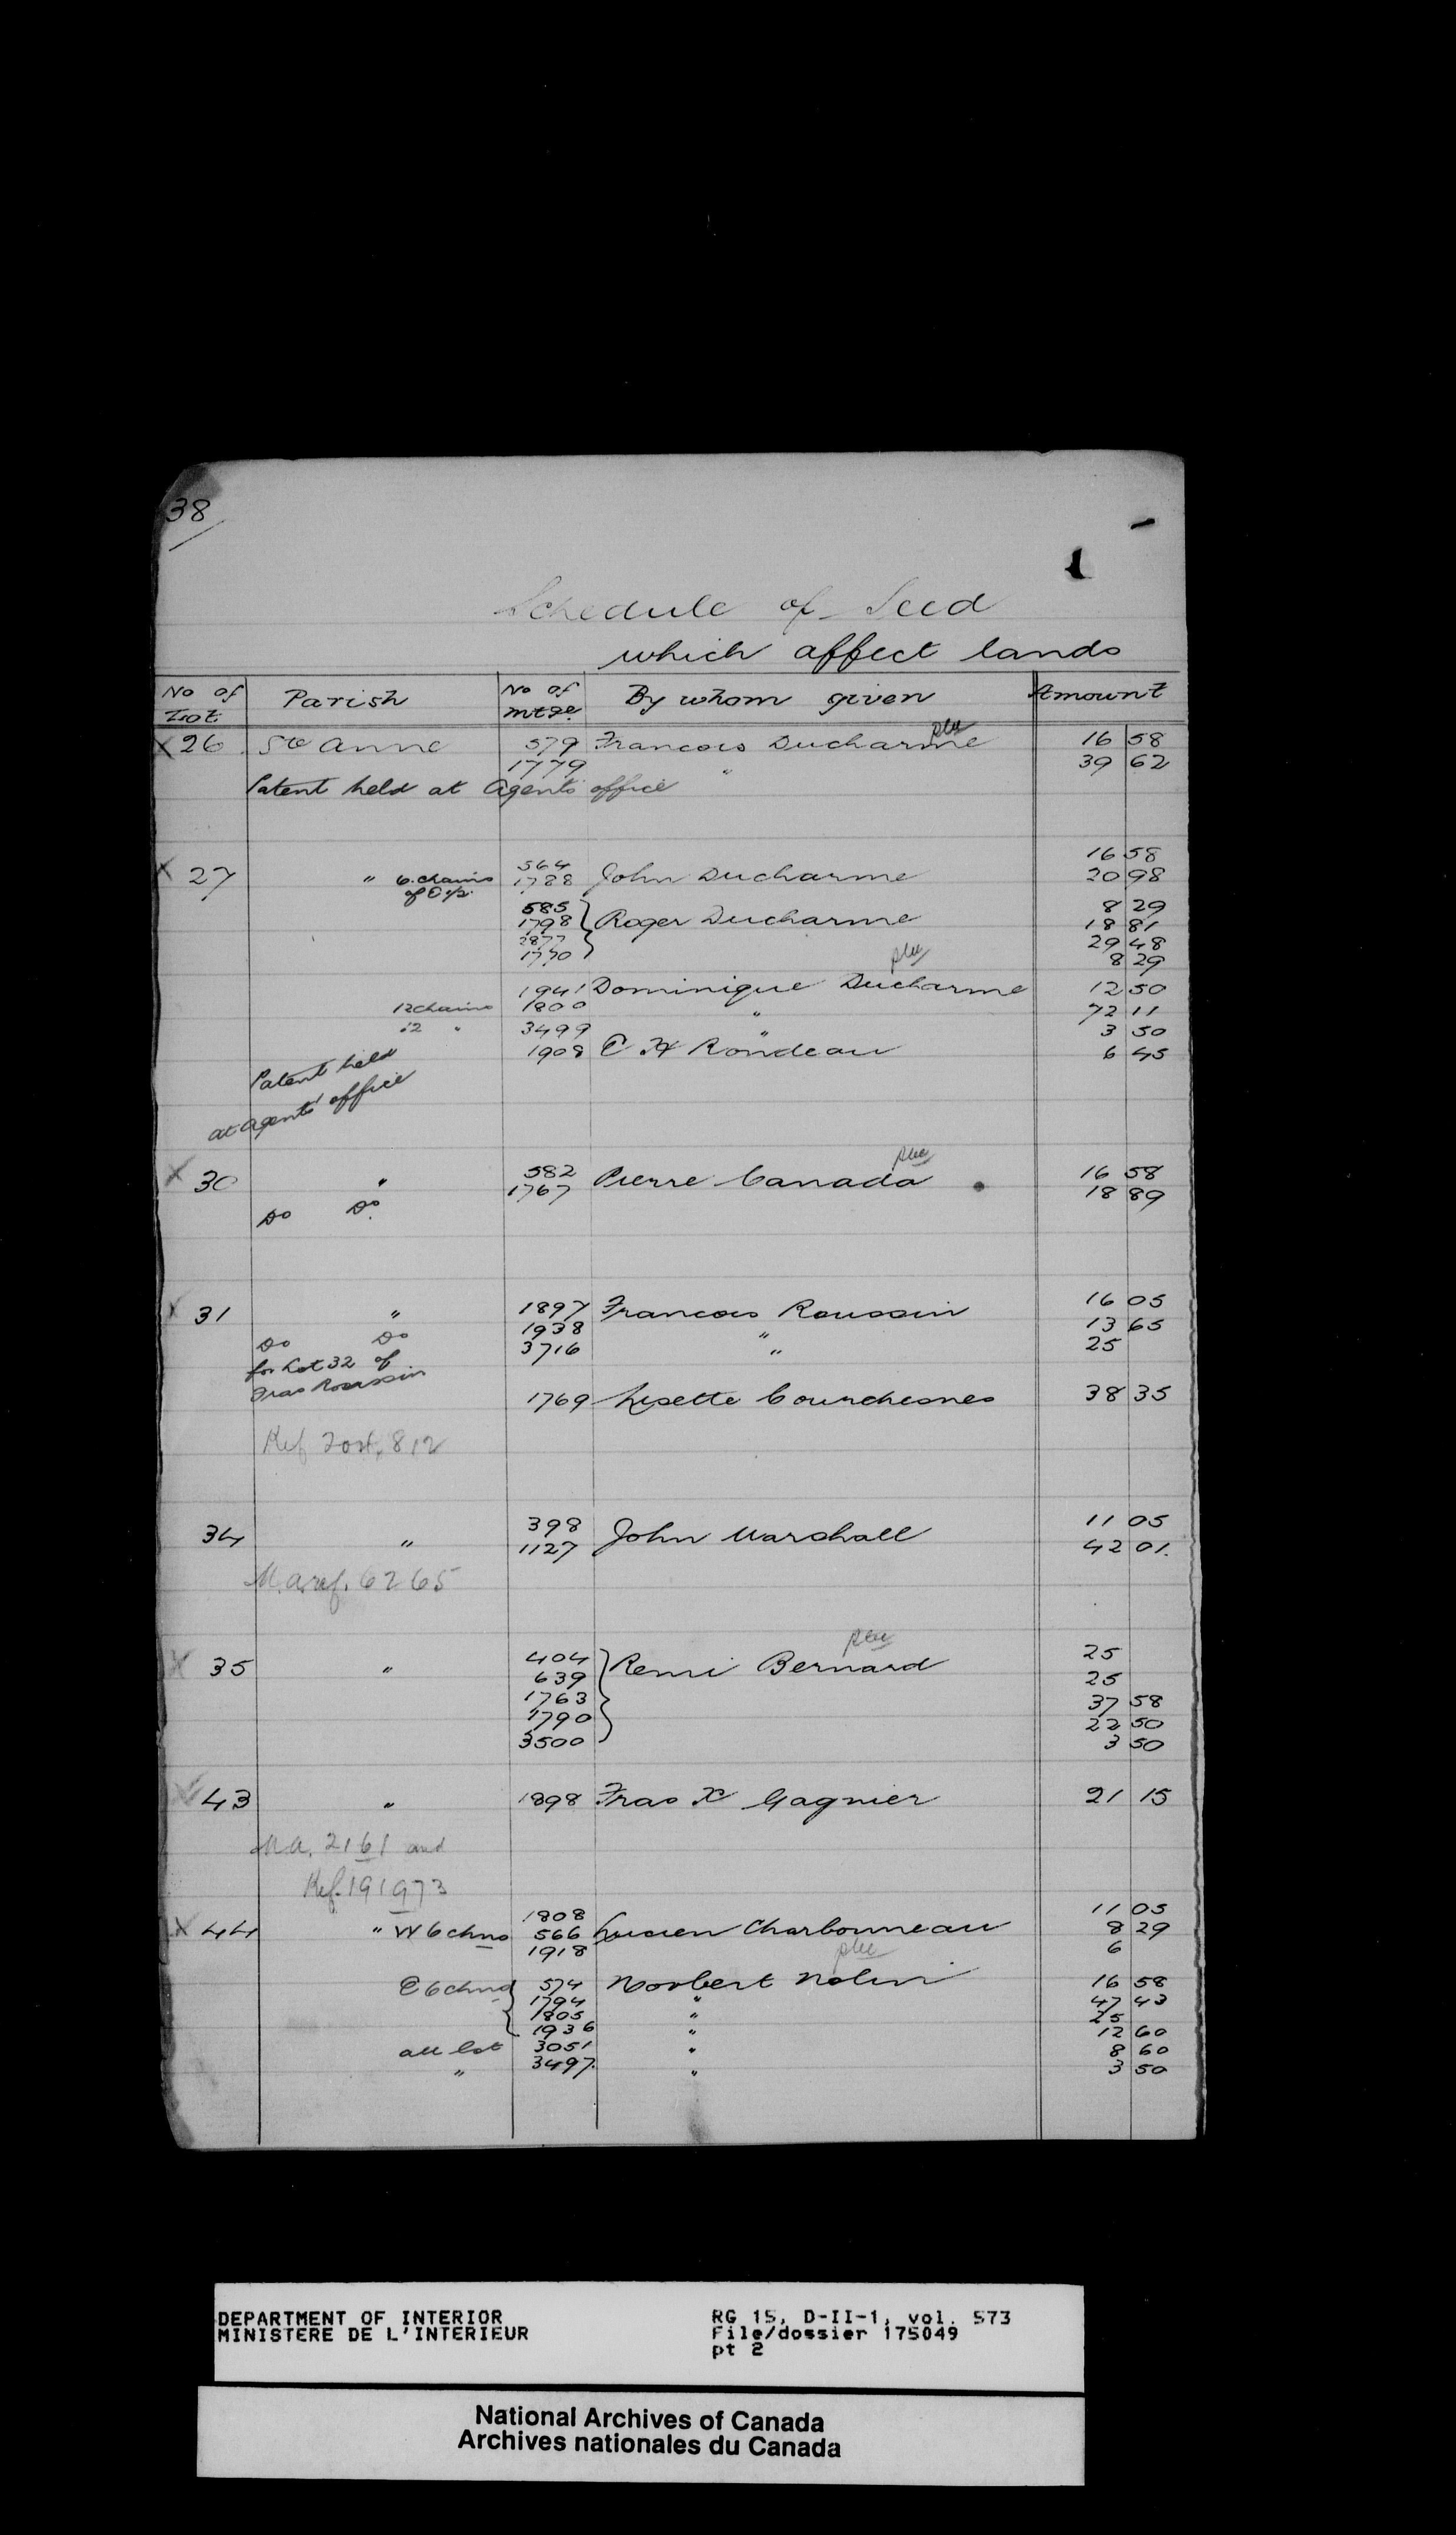 38
1
Schedule of Seed
which affect lands
No of Lot Parish No of mtge. By whom given Amount
X 26 Ste Anne 579 Francois Ducharme 16 58
1779 " 39 62
Patent held at Agents office
16 58
X 27 " 6. chains of 564 John Ducharme
1788 20 98
585 8 29
1798 Roger Ducharme 18 81
2877 29 48
1770 8 29
1941 Dominique Ducharme 12 50
12 chains 1800 " 72 11
12 " 3499 " 3 50
1908 C H Rondeau 6 45
Patent held
at agents' office
X 30 " 582 Pierre Canada 16 58
1767 18 89
Do Do
X 31 " 1897 Francois Roussin 16 05
Do Do 1938 " 13 65
for Lot 32 of 3716 " 25
Fras Roussin
1769 Lisette Courchesnes 38 35
Ref 812
34 " 398 John Marshall 11 05
1127 42 01.
M.a. ref. 6265
X 35 " 404 Remi Bernard 25
639 25
1763 37 58
1790 22 50
3500 3 50
X 43 " 1898 Fras X Gagnier 21 15
M.a. 2161 and
Ref. 191973
1808 11 05
X 44 " W 6 chns 566 Lucien Charbonneau 8 29
1918 6
E 6 chns 574 Norbert Nolin 16 58
1794 " 47 43
1805 " 25
1936 " 12 60
all lot 3051 " 8 60
" 3497. " 3 50
DEPARTMENT OF INTERIOR
MINISTERE DE L'INTERIEUR
RG 15, D-II-1, vol. 573
File/dossier 175049
pt 2
National Archives of Canada
Archives nationales du Canada